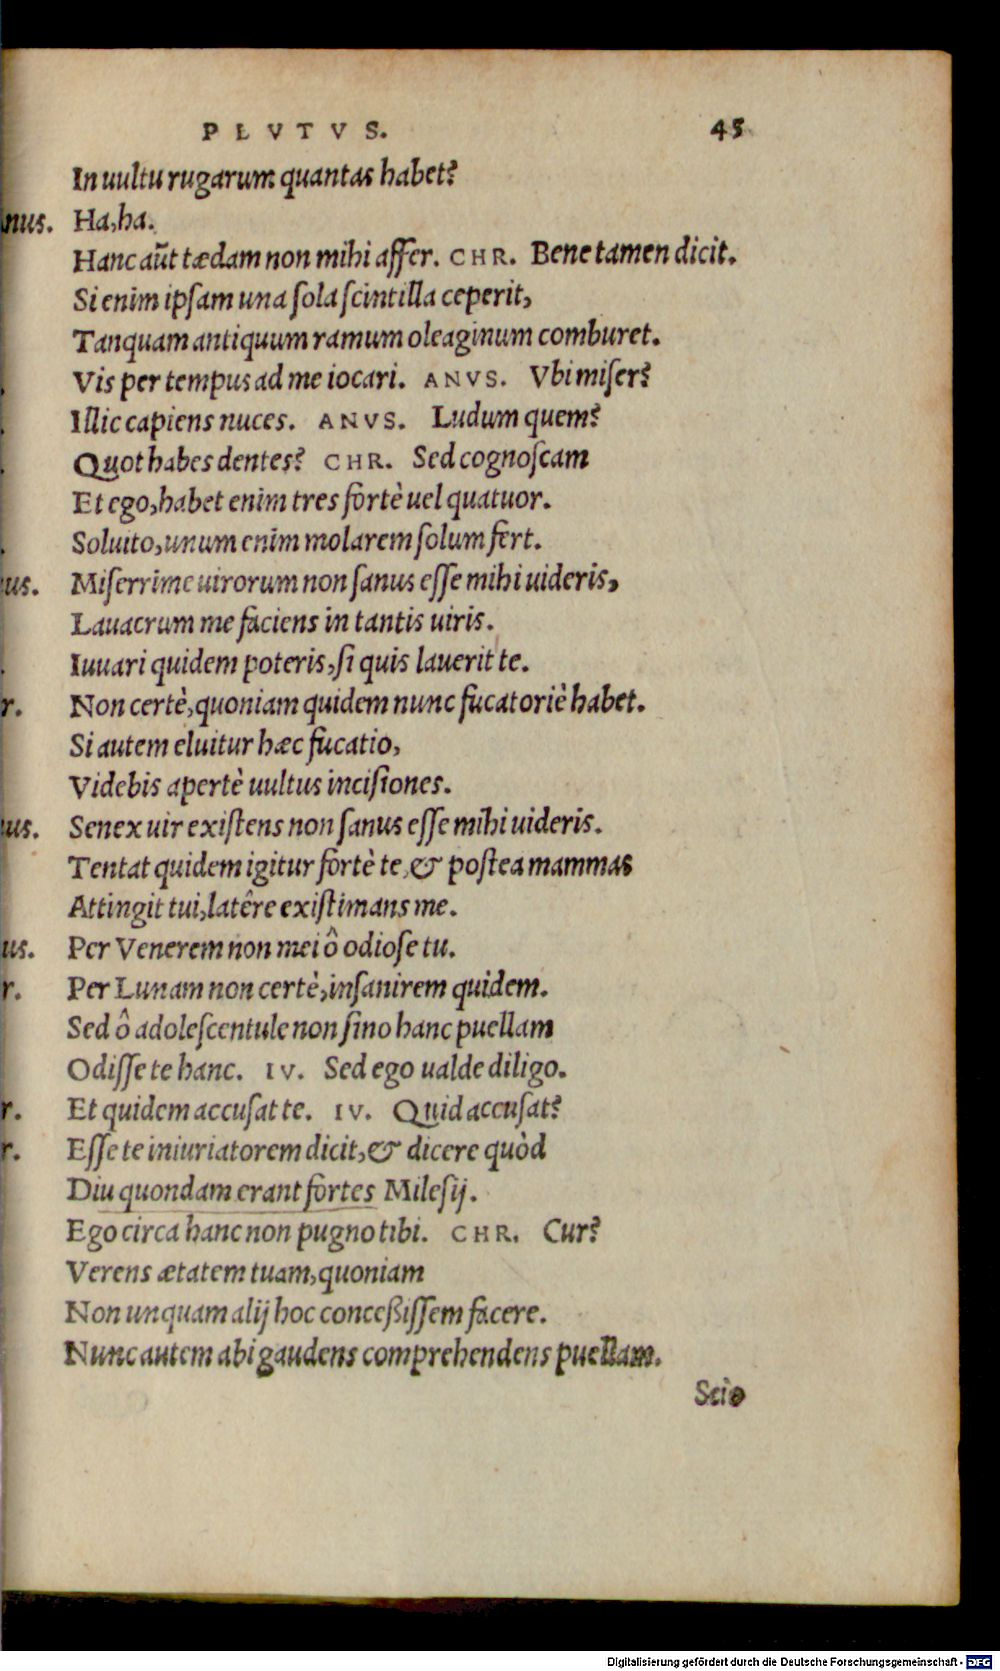 PLVTVS. 45
In uultu rugarum quantas habet?
nus. Ha,ha.
Hanc aũt tædam non mihi affer. CHR. Bene tamen dicit.
Si enim ipſam una ſola ſcintilla ceperit,
Tanquam antiquum ramum oleaginum comburet.
Vis per tempus ad me iocari. ANVS. Vbi miſer?
Illic capiens nuces. ANVS. Ludum quem?
Quot habes dentes? CHR. Sed cognoſcam
Et ego,habet enim tres fortè uel quatuor.
Soluito,unum enim molarem ſolum fert.
us. Miſerrime uirorum non ſanus eſſe mihi uideris,
Lauacrum me faciens in tantis uiris.
Iuuari quidem poteris,ſi quis lauerit te.
r. Non certè,quoniam quidem nunc fucatoriè habet.
Si autem eluitur hæc fucatio,
Videbis apertè uultus inciſiones.
us. Senex uir exiſtens non ſanus eſſe mihi uideris.
Tentat quidem igitur fortè te,& poſtea mammas
Attingit tui,latêre exiſtimans me.
us. Per Venerem non mei ô odioſe tu.
r. Per Lunam non certè,inſanirem quidem.
Sed ô adoleſcentule non ſino hanc puellam
Odiſſe te hanc. IV. Sed ego ualde diligo.
r. Et quidem accuſat te. IV. Quid accuſat?
r. Eſſe te iniuriatorem dicit,& dicere quòd
Diu quondam erant fortes Mileſij.
Ego circa hanc non pugno tibi. CHR. Cur?
Verens ætatem tuam,quoniam
Non unquam alij hoc conceßiſſem facere.
Nunc autem abi gaudens comprehendens puellam.
Scio
Digitalisierung gefördert durch die Deutsche Forschungsgemeinschaft - DFG